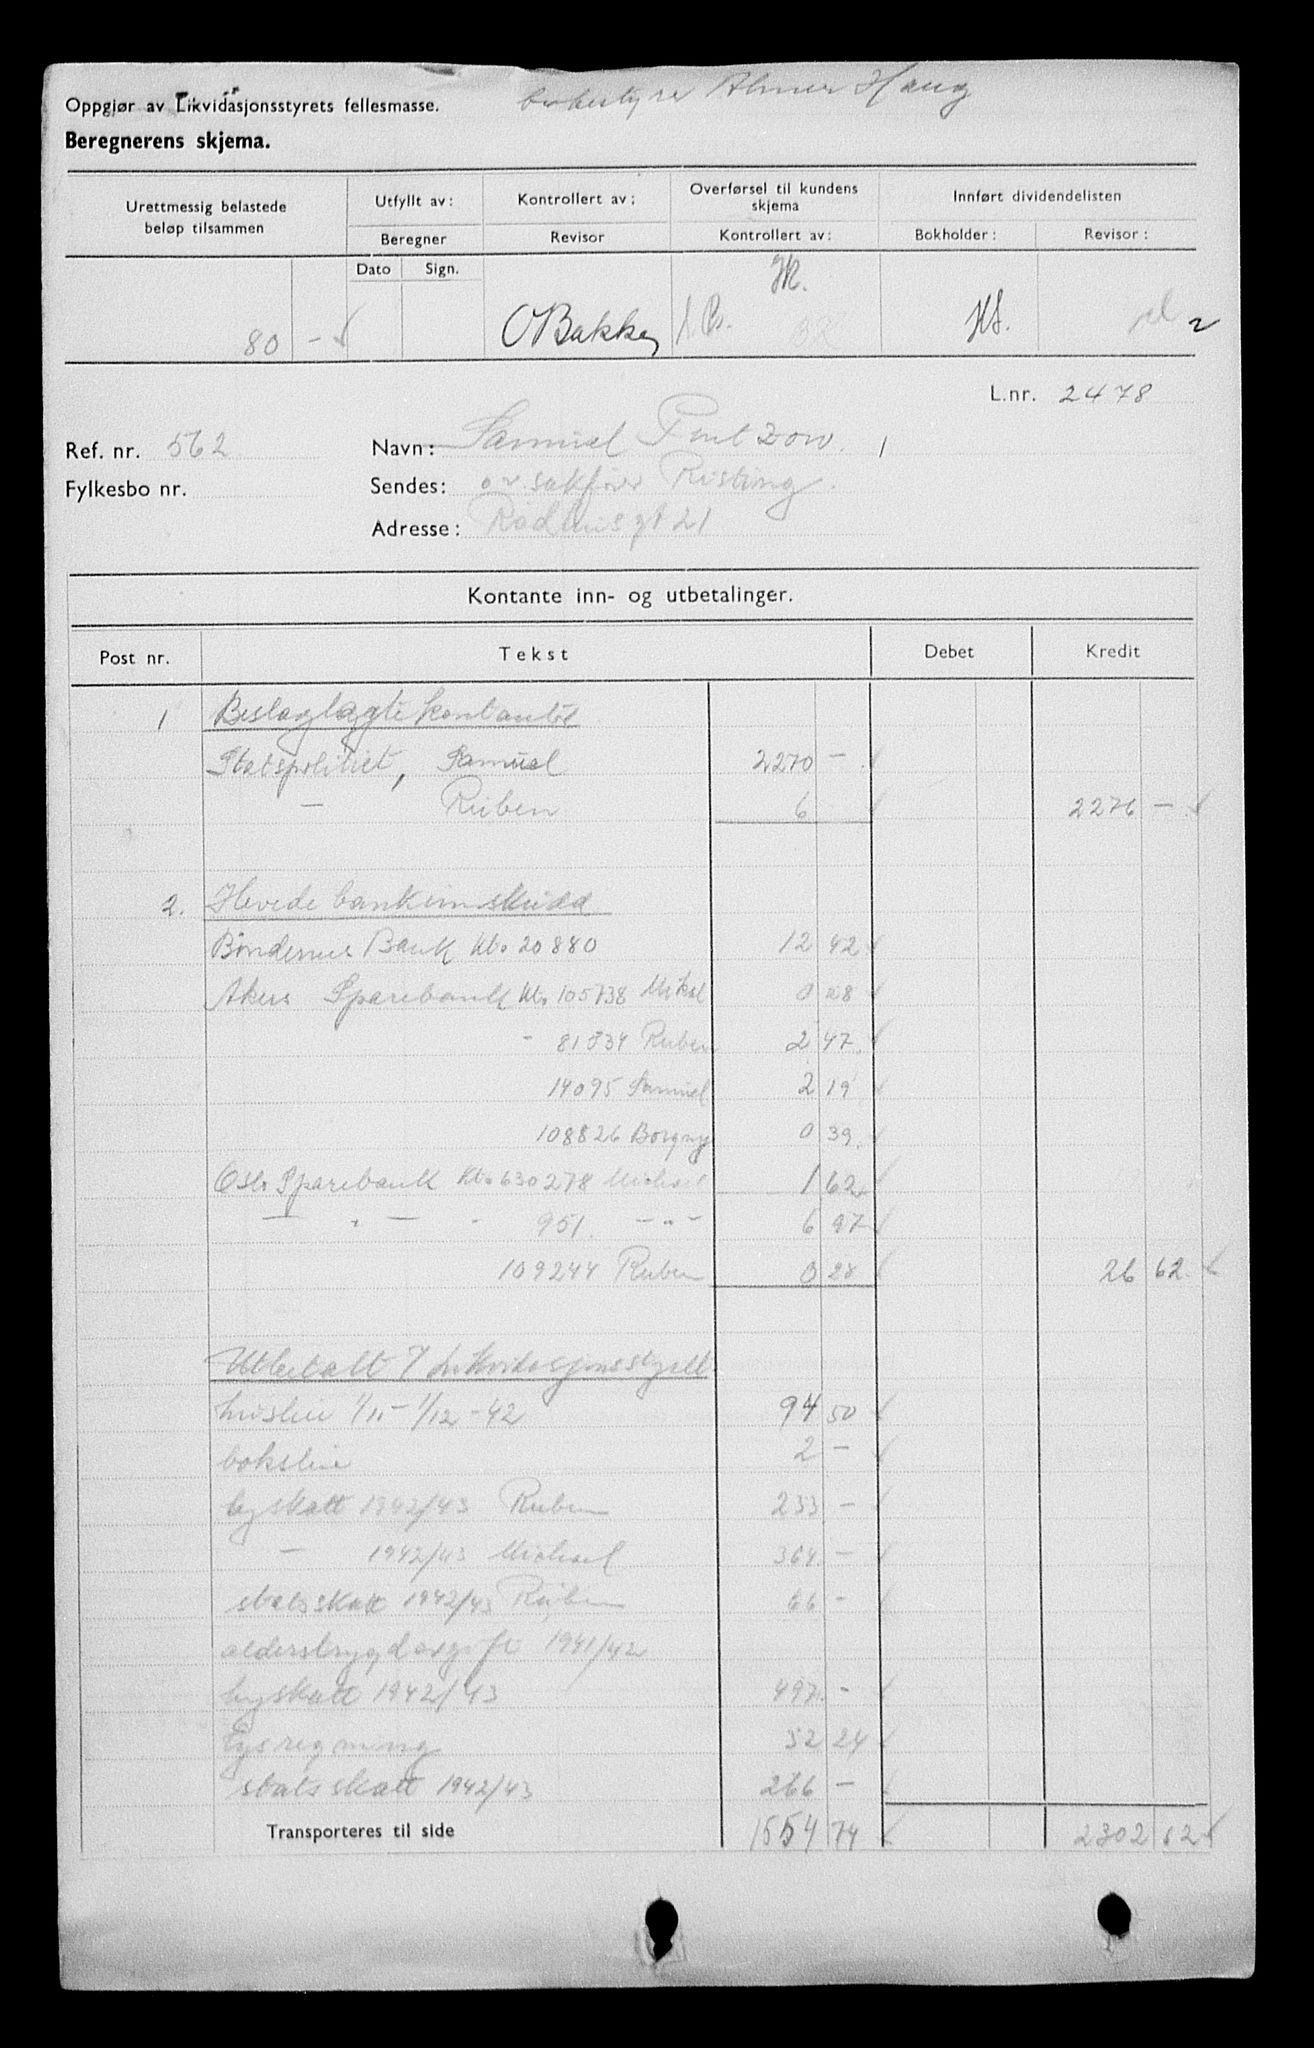 Oppgjør av Likvidasjonsstyrets fellesmasse.
bobestyrer Abner Haug
Beregnerens skjema.
Urettmessig belastede beløp tilsammen
Utfylt av:
Kontrollert av:
Overførsel til kundens skjema
Innført dividendelisten
Beregner
Revisor
Kontrollert av:
Bokholder:
Revisor:
Dato Sign.
80 -
O Bakke
L.nr. 2478
Ref. nr. 562
Navn: Samuel
Fylkesbo nr.
Sendes: or sakfører Risting.
Adresse: Rådhusgt 21
Kontante inn- og utbetalinger.
Post nr. Tekst Debet Kredit
1 Beslaglagte kontanter
Statspolitiet, Samuel 2270 -
- Ruben 6 2276 -
2. Hevede bankinnskudd
Bøndernes Bank kto 20880 12 42
Akers Sparebank kto 105738 Mikal 0 28
- 81334 Ruben 2 47
14095 Samuel 2 19
108826 Borgny 0 39
Oslo Sparebank kto 630278 Michael 1 62
- " - 951. - " - 6 97
109244 Ruben 0 28 26 62
Utbetalt / Likvidasjonsstyret
husleie 1/11 - 1/12 - 42 94 50
boksleie 2 -
byskatt 1942/43 Ruben 233 -
- 1942/43 Michael 364 -
statsskatt 1942/43 Ruben 66 -
alderstrygdavgift 1941/42
byskatt 1942/43 497 -
lysregning 32 24
statsskatt 1942/43 266 -
Transporteres til side 1554 74 2302 62